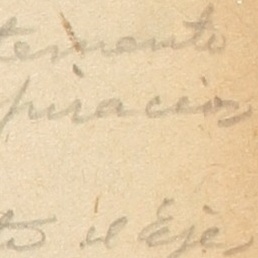 temente
piracion
to el Eje